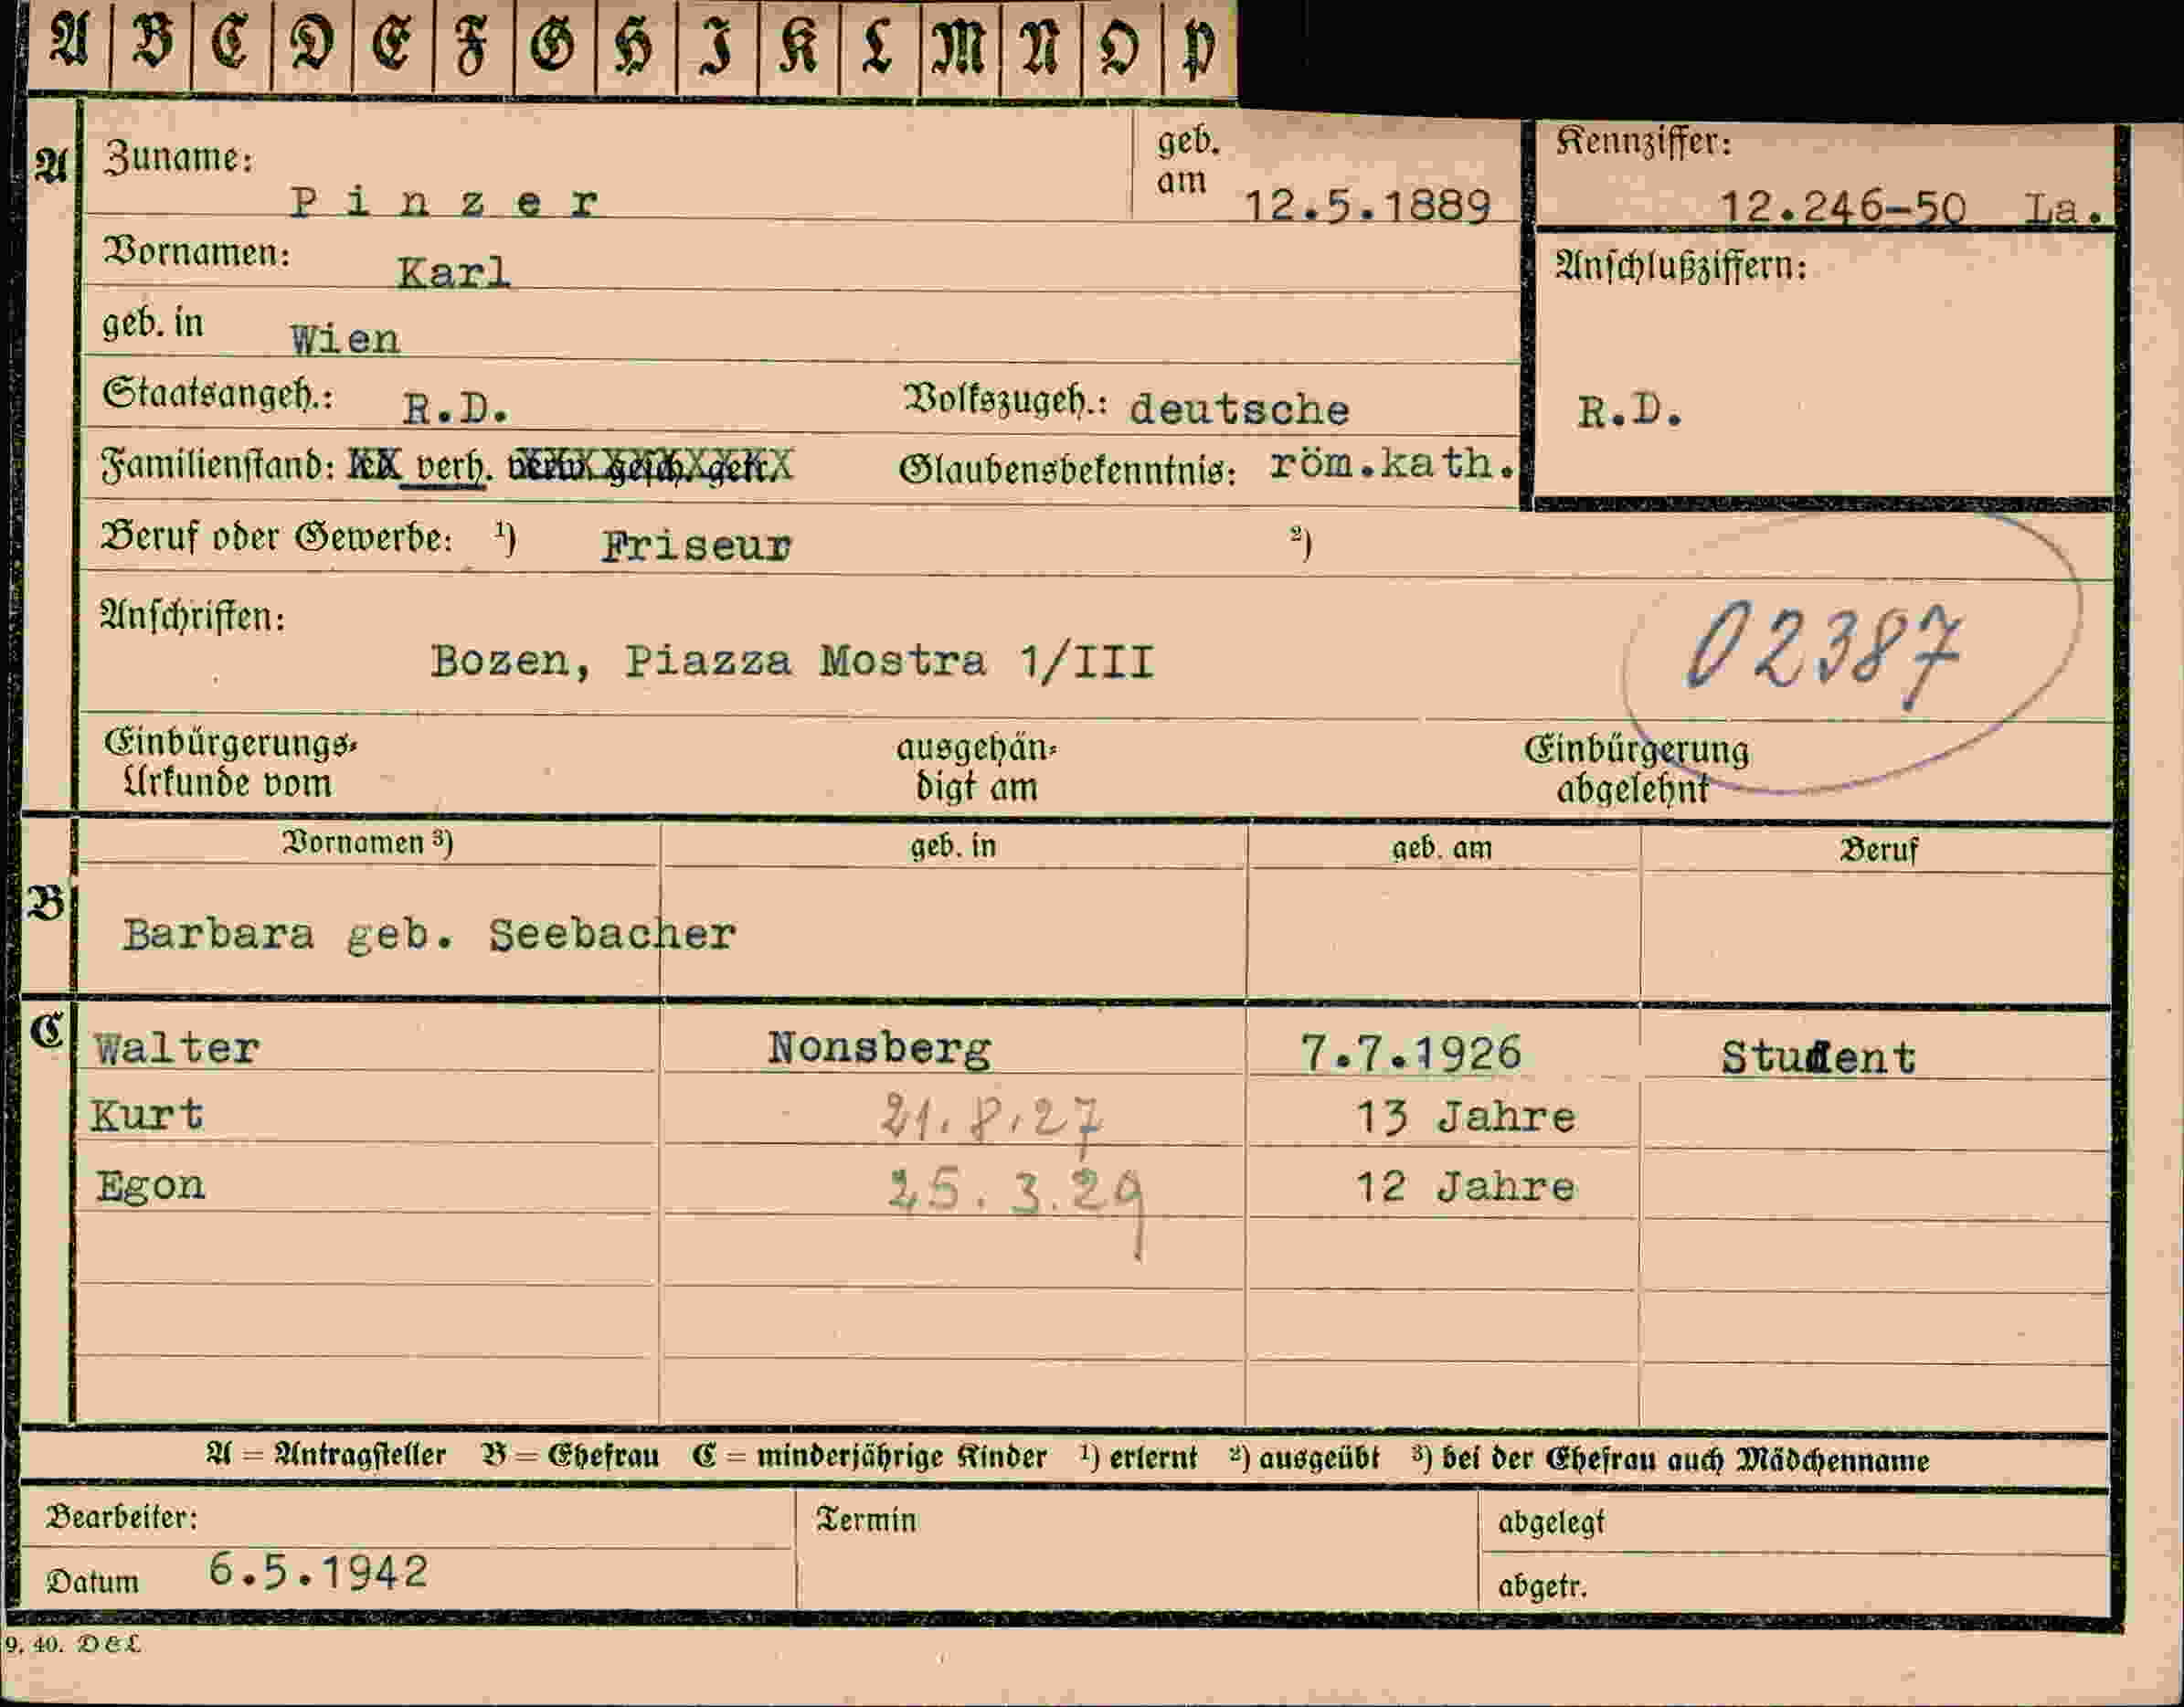 A B C D E F G H I K L M N O P
A Zuname: Pinzer geb. am 12.5.1889 Kennziffer: 12.246-50 La.
Vornamen: Karl Anschlußziffern:
geb. in Wien
Staatsangeh.: R.D. Volkszugeh.: deutsche R.D.
Familienstand: verh. verw. gesch. getr. Glaubensbekenntnis: röm.kath.
Beruf oder Gewerbe: 1) Friseur 2)
Anschriften: 02387
Bozen, Piazza Mostra 1/III
Einbürgerungs- ausgehän- Einbürgerung
Urkunde vom digt am abgelehnt
Vornamen 3) geb. in geb. am Beruf
B Barbara geb. Seebacher
C Walter Nonsberg 7.7.1926 Student
Kurt 21.8.27 13 Jahre
Egon 25.3.29 12 Jahre
A = Antragsteller B = Ehefrau C = minderjährige Kinder 1) erlernt 2) ausgeübt 3) bei der Ehefrau auch Mädchenname
Bearbeiter: Termin abgelegt
Datum 6.5.1942 abgetr.
9. 40. D & L